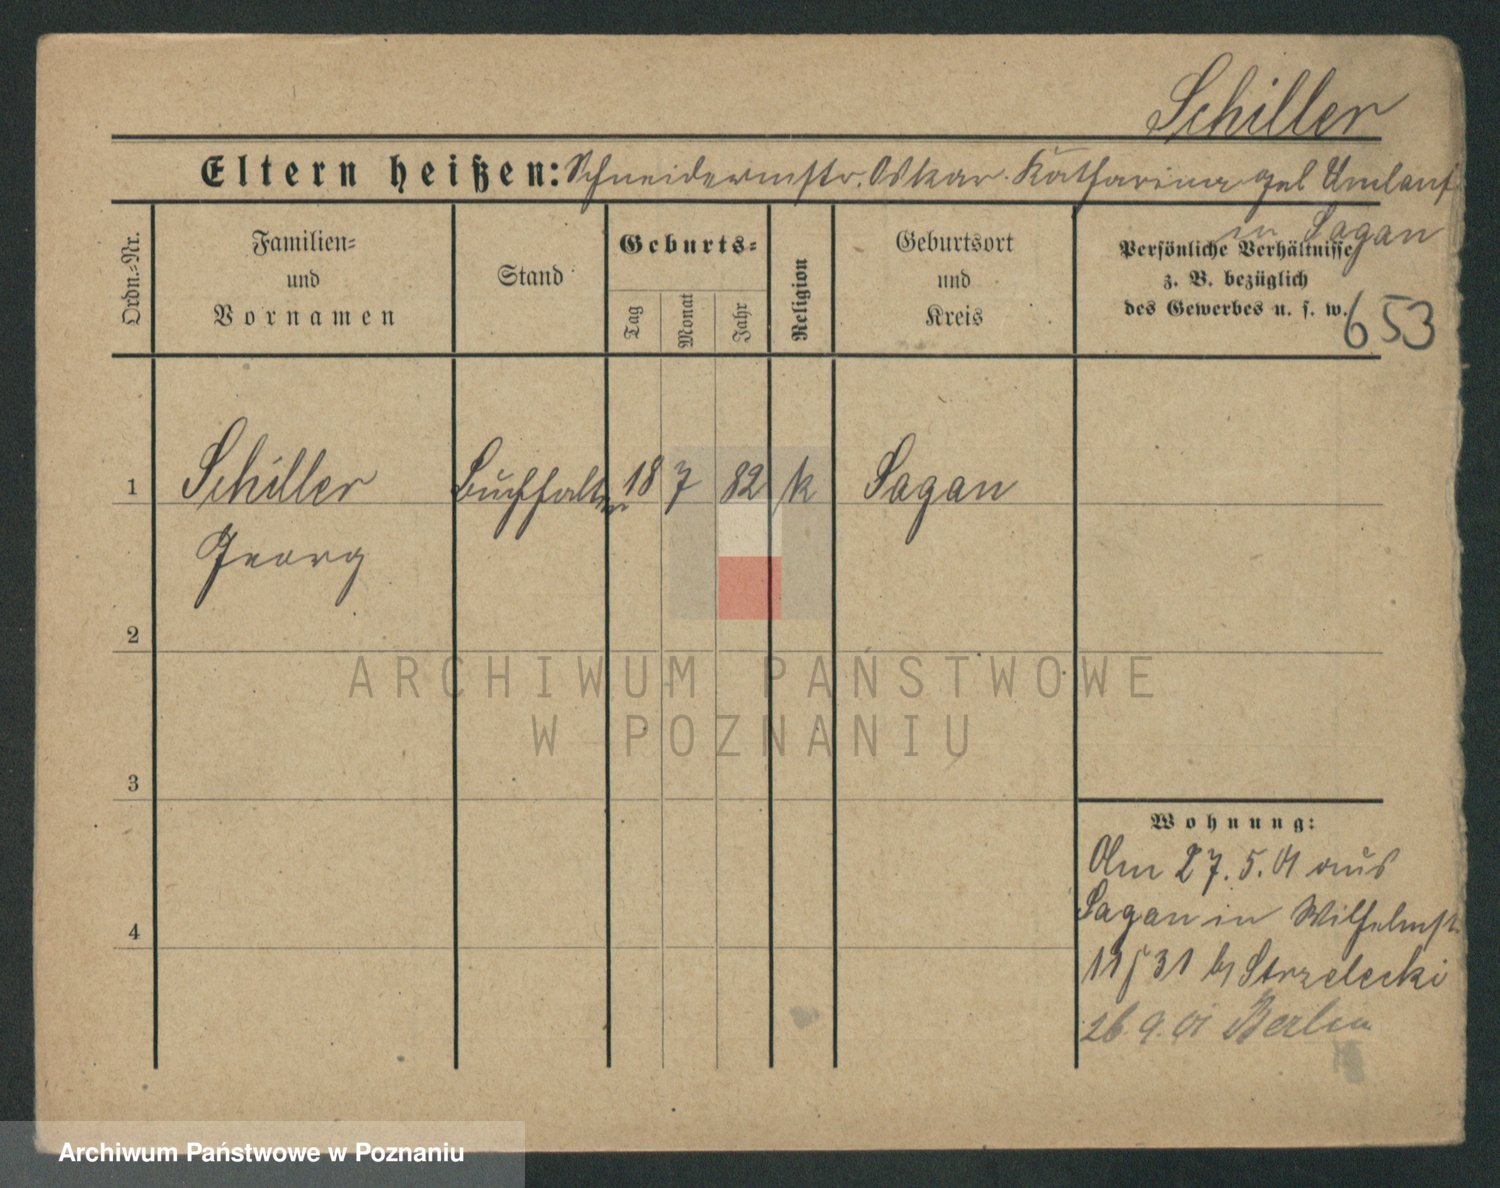 Schiller
Eltern heißen: Schneidermstr. Oskar. Katharina geb Umlauf
in Sagan
Ordn.-Nr.
Familien-
und
Vornamen
Stand
Geburts-
Tag
Monat
Jahr
Religion
Geburtsort
und
Kreis
Persönliche Verhältnisse
z. B. bezüglich
des Gewerbes u. s. w.
653
1 Schiller Buchhalter 18 7 82 k Sagan
Georg
2
3
4
Wohnung:
Am 27.5.01 aus
Sagan in Wilhelmst.
11 31 b/ Strzelecki
26.9.01 Berlin
ARCHIWUM PAŃSTWOWE
W POZNANIU
Archiwum Państwowe w Poznaniu